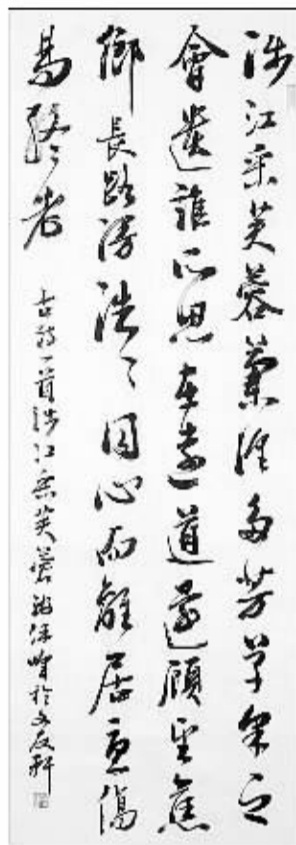 涉江采芙蓉蘭澤多芳草采之
會遺誰所思在遠道還顧望舊
鄉長路漫浩〻同心而離居憂傷
終老
古詩一首涉江采芙蓉 保峰於文友軒